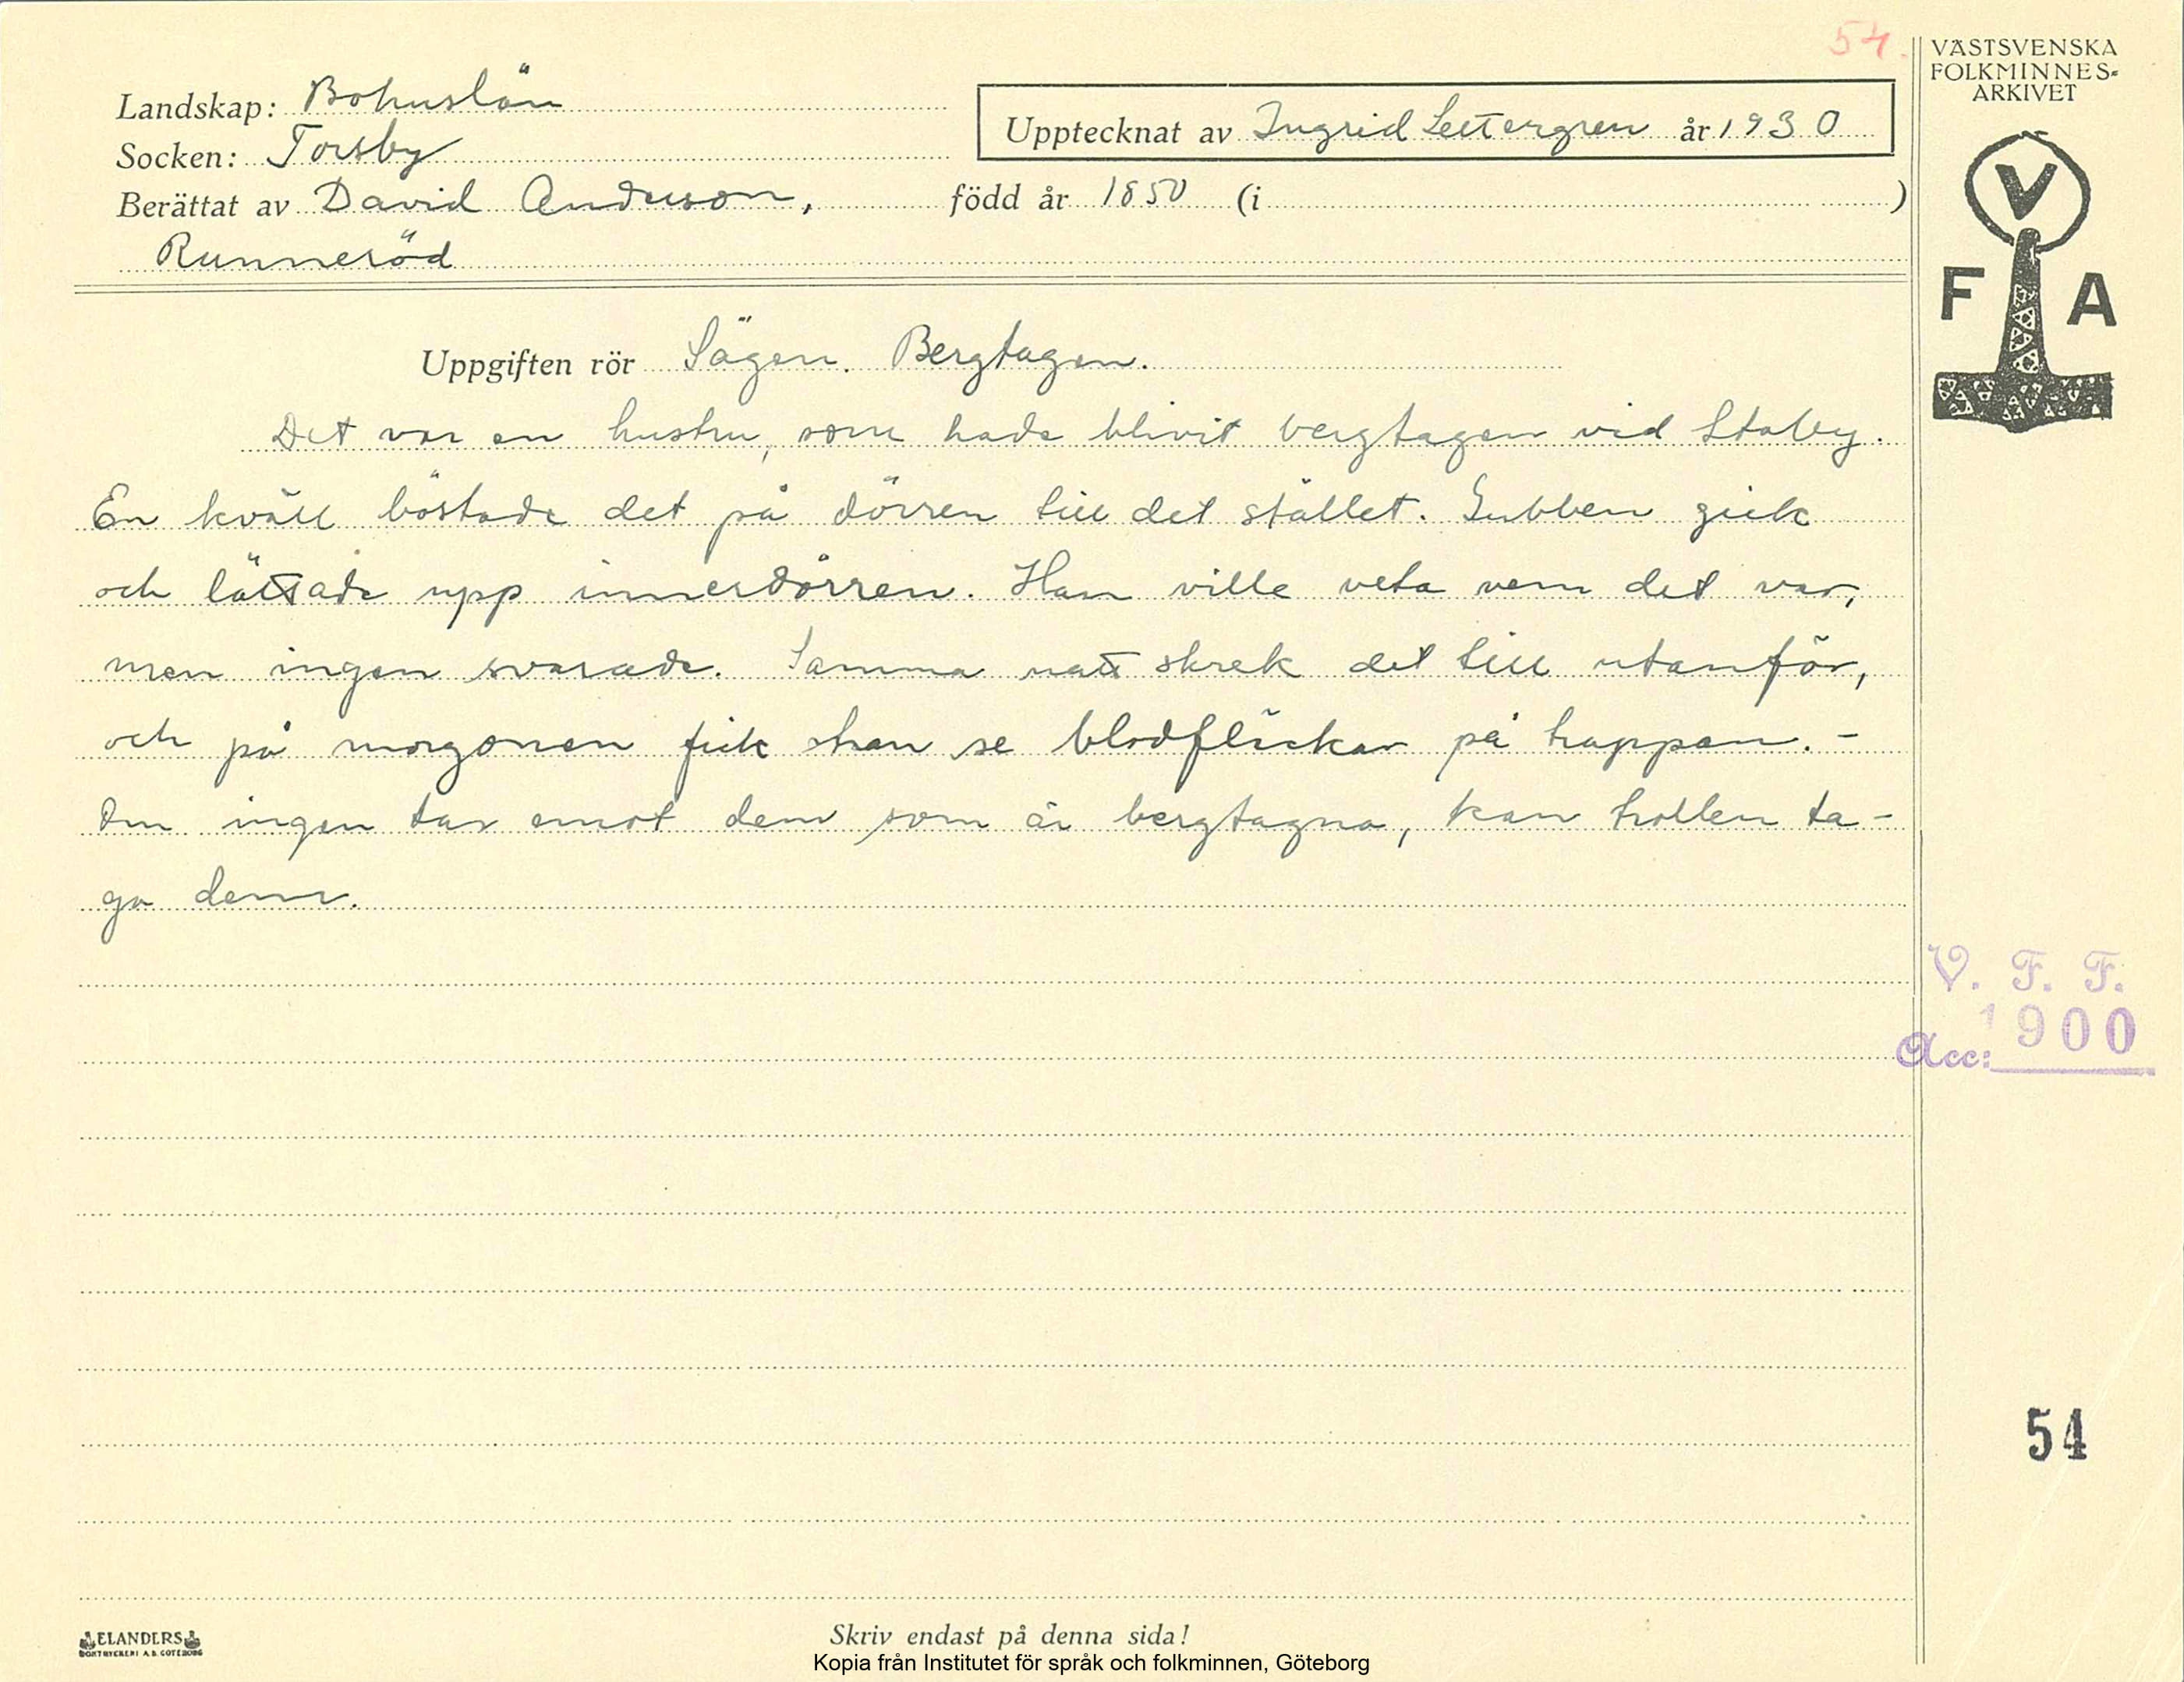 54.
VÄSTSVENSKA
FOLKMINNES-
ARKIVET
Landskap: Bohuslän
Upptecknat av Ingrid Settergren år 1930
Socken: Torsby
Berättat av David Anderson, född år 1850 (i )
Runneröd
V
F A
Uppgiften rör Sägen. Bergtagen.
Det var en hustru, som hade blivit bergtagen vid Staby.
En kväll böstade det på dörren till det stället. Gubben gick
och lättade upp innerdörren. Han ville veta vem det var,
men ingen svarade. Samma natt skrek det till utanför,
och på morgonen fick han se blodfläckar på trappan. -
Om ingen tar emot dem som är bergtagna, kan trollen ta-
ga dem.
V. F. F.
1900
Acc:
54
ELANDERS
BOKTRYCKERI A.B. GÖTEBORG
Skriv endast på denna sida!
Kopia från Institutet för språk och folkminnen, Göteborg